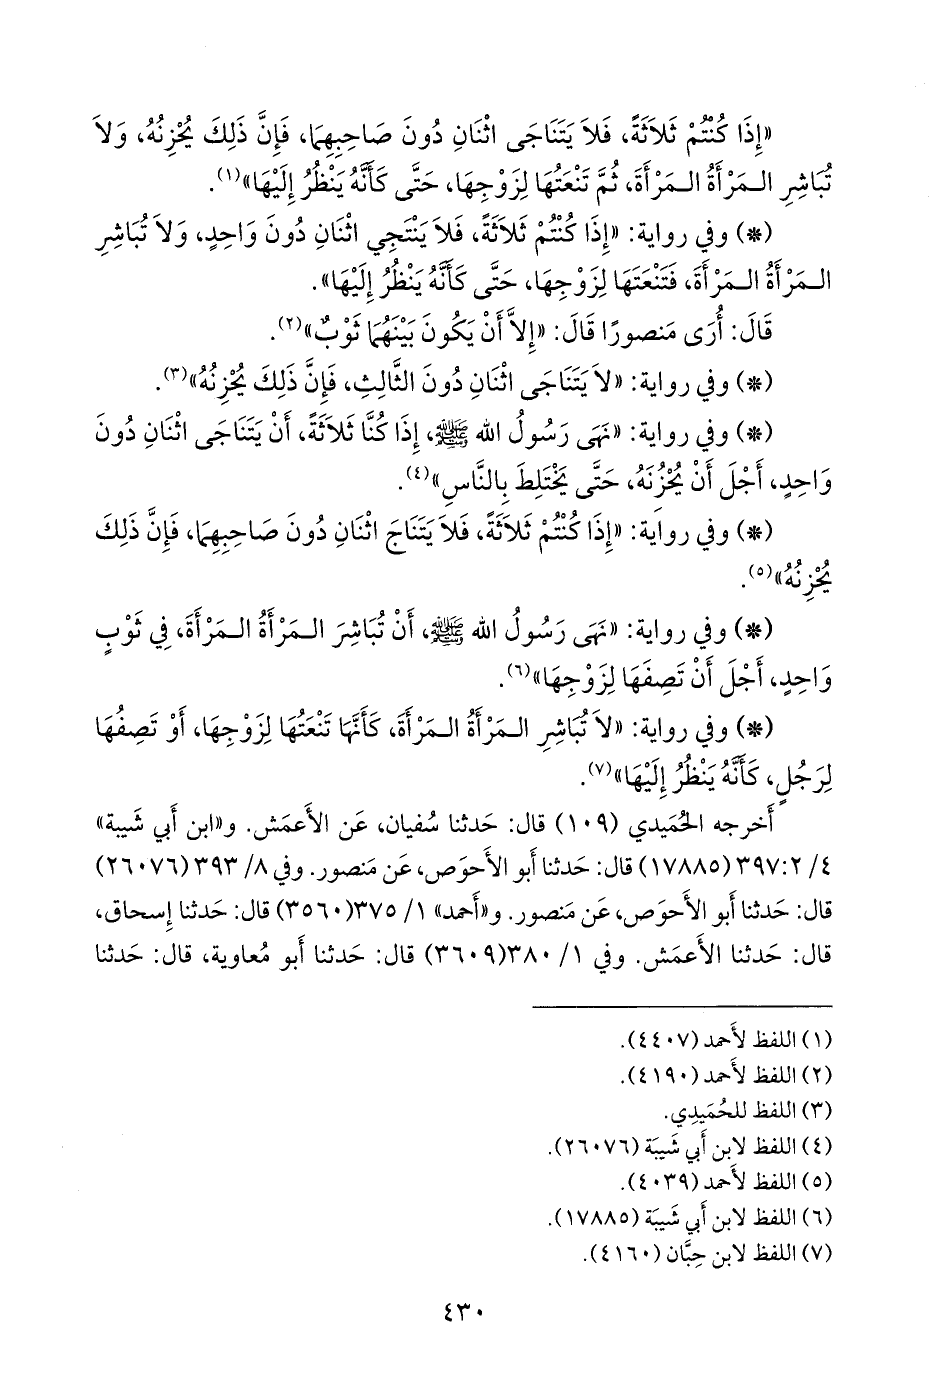 «إِذَا كُنْتُمْ ثَلَاثَةً، فَلاَ يَتَنَاجَى اثْنَانِ دُونَ صَاحِبِهِمَا، فَإِنَّ ذَلِكَ يُحْزِنُهُ، وَلاَ
تُبَاشِرِ الـمَرْأَةُ الـمَرْأَةَ، ثُمَّ تَنْعَتُهَا لِزَوْجِهَا، حَتَّى كَأَنَّهُ يَنْظُرُ إِلَيْهَا»(١).
(*) وفي رواية: «إِذَا كُنْتُمْ ثَلَاثَةً، فَلاَ يَنْتَجِي اثْنَانِ دُونَ وَاحِدٍ، وَلاَ تُبَاشِرِ
الـمَرْأَةُ الـمَرْأَةَ، فَتَنْعَتَهَا لِزَوْجِهَا، حَتَّى كَأَنَّهُ يَنْظُرُ إِلَيْهَا».
قَالَ: أُرَى مَنصورًا قَالَ: «إِلاَّ أَنْ يَكُونَ بَيْنَهُمَا ثَوْبٌ»(٢).
(*) وفي رواية: «لاَ يَتَنَاجَى اثْنَانِ دُونَ الثَّالِثِ، فَإِنَّ ذَلِكَ يُحْزِنُهُ»(٣).
(*) وفي رواية: «نَهَى رَسُولُ الله ﷺ، إِذَا كُنَّا ثَلَاثَةً، أَنْ يَتَنَاجَى اثْنَانِ دُونَ
وَاحِدٍ، أَجْلَ أَنْ يُحْزِنَهُ، حَتَّى يَخْتَلِطَ بِالنَّاسِ»(٤).
(*) وفي رواية: «إِذَا كُنْتُمْ ثَلَاثَةً، فَلاَ يَتَنَاجَ اثْنَانِ دُونَ صَاحِبِهِمَا، فَإِنَّ ذَلِكَ
يُحْزِنُهُ»(٥).
(*) وفي رواية: «نَهَى رَسُولُ الله ﷺ، أَنْ تُبَاشِرَ الـمَرْأَةُ الـمَرْأَةَ، فِي ثَوْبٍ
وَاحِدٍ، أَجْلَ أَنْ تَصِفَهَا لِزَوْجِهَا»(٦).
(*) وفي رواية: «لاَ تُبَاشِرِ الـمَرْأَةُ الـمَرْأَةَ، كَأَنَّهَا تَنْعَتُهَا لِزَوْجِهَا، أَوْ تَصِفُهَا
لِرَجُلٍ، كَأَنَّهُ يَنْظُرُ إِلَيْهَا»(٧).
أَخرجه الحُميدي (١٠٩) قال: حَدثنا سُفيان، عَن الأَعمَش. و«ابن أَبي شَيبة»
٤/ ٣٩٧:٢(١٧٨٨٥) قال: حَدثنا أَبو الأَحوَص، عَن مَنصور. وفي ٨/ ٣٩٣(٢٦٠٧٦)
قال: حَدثنا أَبو الأَحوَص، عَن مَنصور. و«أَحمد» ١/ ٣٧٥(٣٥٦٠) قال: حَدثنا إِسحاق،
قال: حَدثنا الأَعمَش. وفي ١/ ٣٨٠(٣٦٠٩) قال: حَدثنا أَبو مُعاوية، قال: حَدثنا
(١) اللفظ لأَحمد (٤٤٠٧).
(٢) اللفظ لأَحمد (٤١٩٠).
(٣) اللفظ للحُمَيدِي.
(٤) اللفظ لابن أَبي شَيبَة (٢٦٠٧٦).
(٥) اللفظ لأَحمد (٤٠٣٩).
(٦) اللفظ لابن أَبي شَيبَة (١٧٨٨٥).
(٧) اللفظ لابن حِبَّان (٤١٦٠).
٤٣٠